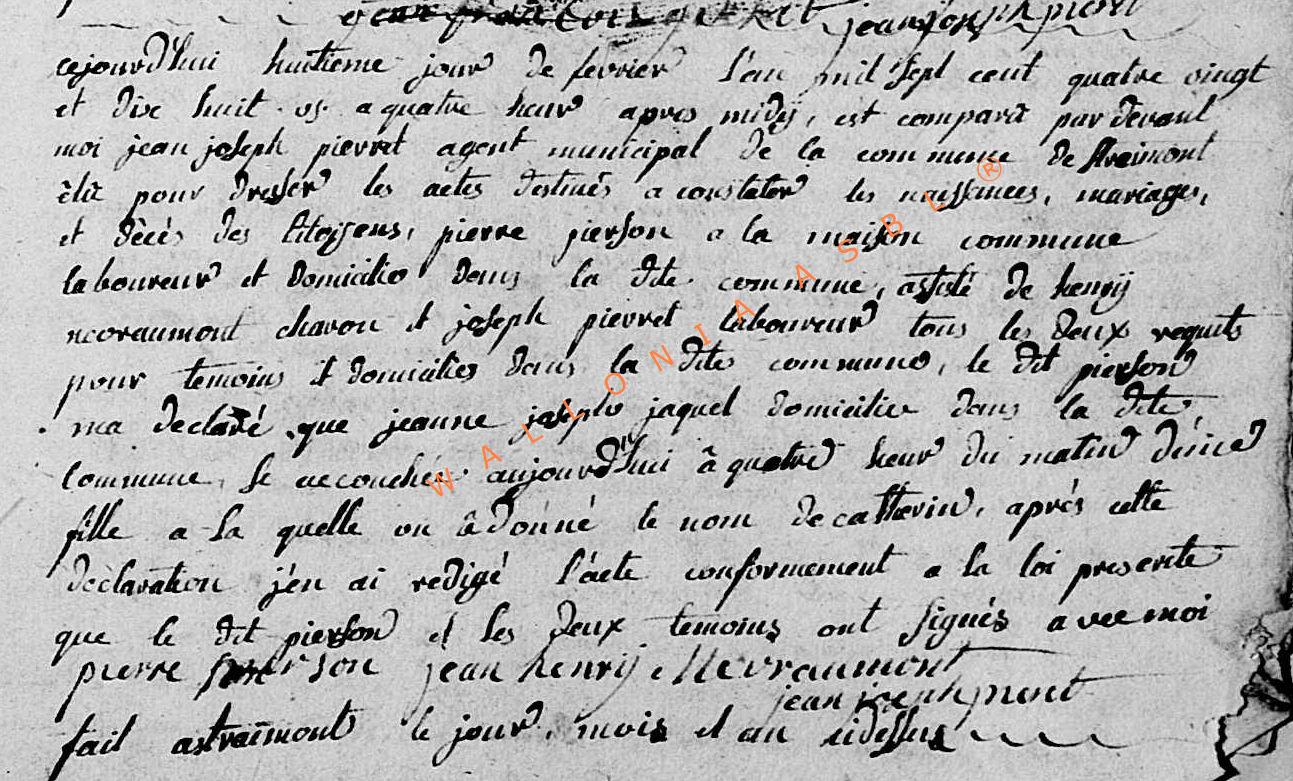 jean joseph pierret
cejourd'hui huitieme jour de fevrier l'an mil sept cent quatre vingt
et dix huit vs. a quatre heur apres midÿ, est comparu par devant
moi jean joseph pierret agent municipal de la commune de straimont
élu pour dresser les actes destinés a constater les naissances, mariages,
et décès des Citoÿens, pierre pierson a la maison commune
laboureur et domicilié dans la dite commune, assisté de henrÿ
charon et joseph pierret laboureur tous les deux requits
pour temoins et domicilies dans la dite commune, le dit pierson
ma declaré que jeanne joseph jaquet domiciliee dans la dite
commune, se accouchée aujourd'hui à quatre heur du matin d'une
fille a la quelle on à donné le nom de catherin, après cette
declaration j'en ai redigé l'acte conformement a la loi prescrite
que le dit pierson et les deux temoins ont signés avec moi
pierre pierson jean henrÿ Nevraumont
jean joseph pierret
fait astraimont le jour, mois et an cidessus
WALLONIA ASBL ®